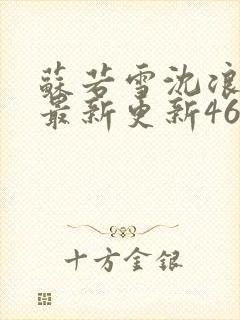 蘇若雪沈浪
最新更新46
十方金銀